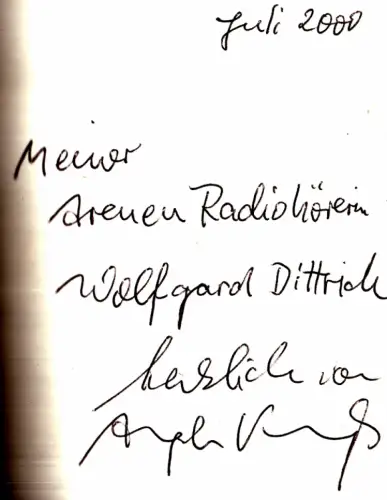 Juli 2000
Meiner
treuen Radiohörerin
Wolfgard Dittrich
herzlich von
Angela